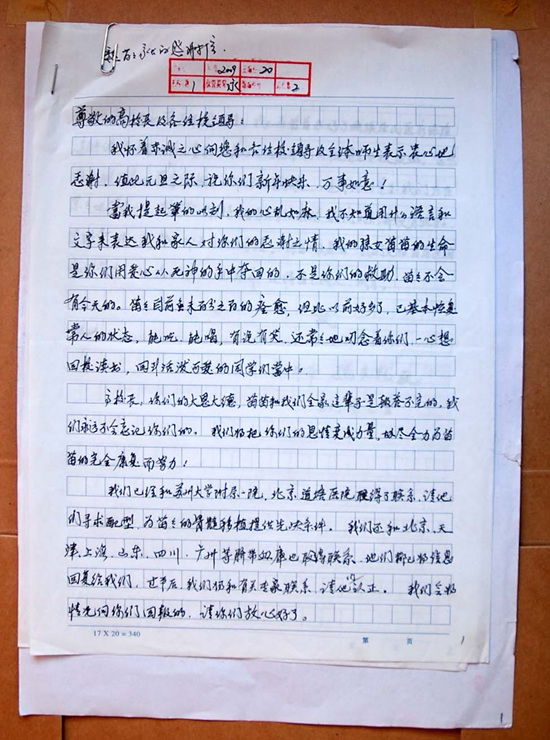 感谢信
2009 20
1 永 2
尊敬的高校长及各位校领导：
我怀着赤诚之心向您和六位校领导及全体师生表示衷心地
感谢，值此元旦之际，祝你们新年快乐，万事如意！
当我提起笔的时刻，我的心乱如麻，我不知道用什么语言和
文字来表达我和家人对你们的感谢之情，我的孙女苗苗的生命
是你们用爱心从死神的手中夺回的，不是你们的救助，苗苗不会
有今天的。苗苗目前虽未百分之百的痊愈，但比以前好多了，已基本恢复
常人的状态，能吃，能喝，有说有笑，还常常地叨念着你们，一心想
回校读书，回到活泼可爱的同学们当中。
校长，你们的大恩大德，苗苗和我们全家这辈子是报答不完的，我
们永远不会忘记你们的。我们将把你们的恩情变成力量，竭尽全力为苗
苗的完全康复而努力！
我们已经和苏州大学附属一院，北京道培医院取得了联系，请他
们寻求配型，为苗苗的骨髓移植提供先决条件。我们还和北京、天
津、上海、山东、四川、广州等脐带血库也取得联系，他们都已将信息
回复给我们，过节后，我们仍和有关专家联系，请他们认证。我们会将
情况向你们回报的，请你们放心好了。
17 X 20 = 340
第 页
1
1